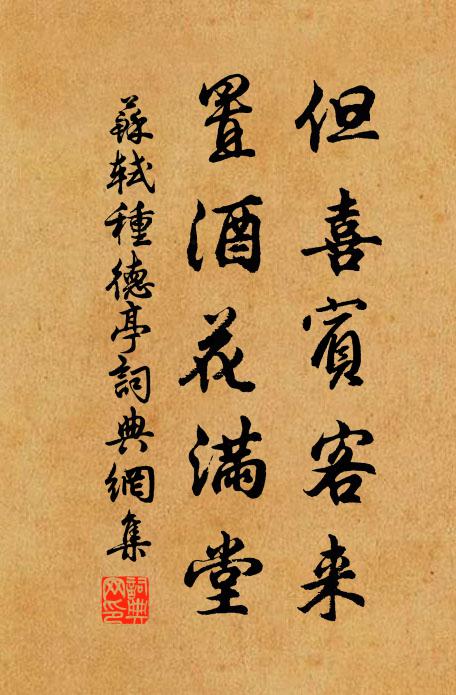 但喜賓客来
置酒花滿堂
蘇軾種德亭詞典網集
詞典网印